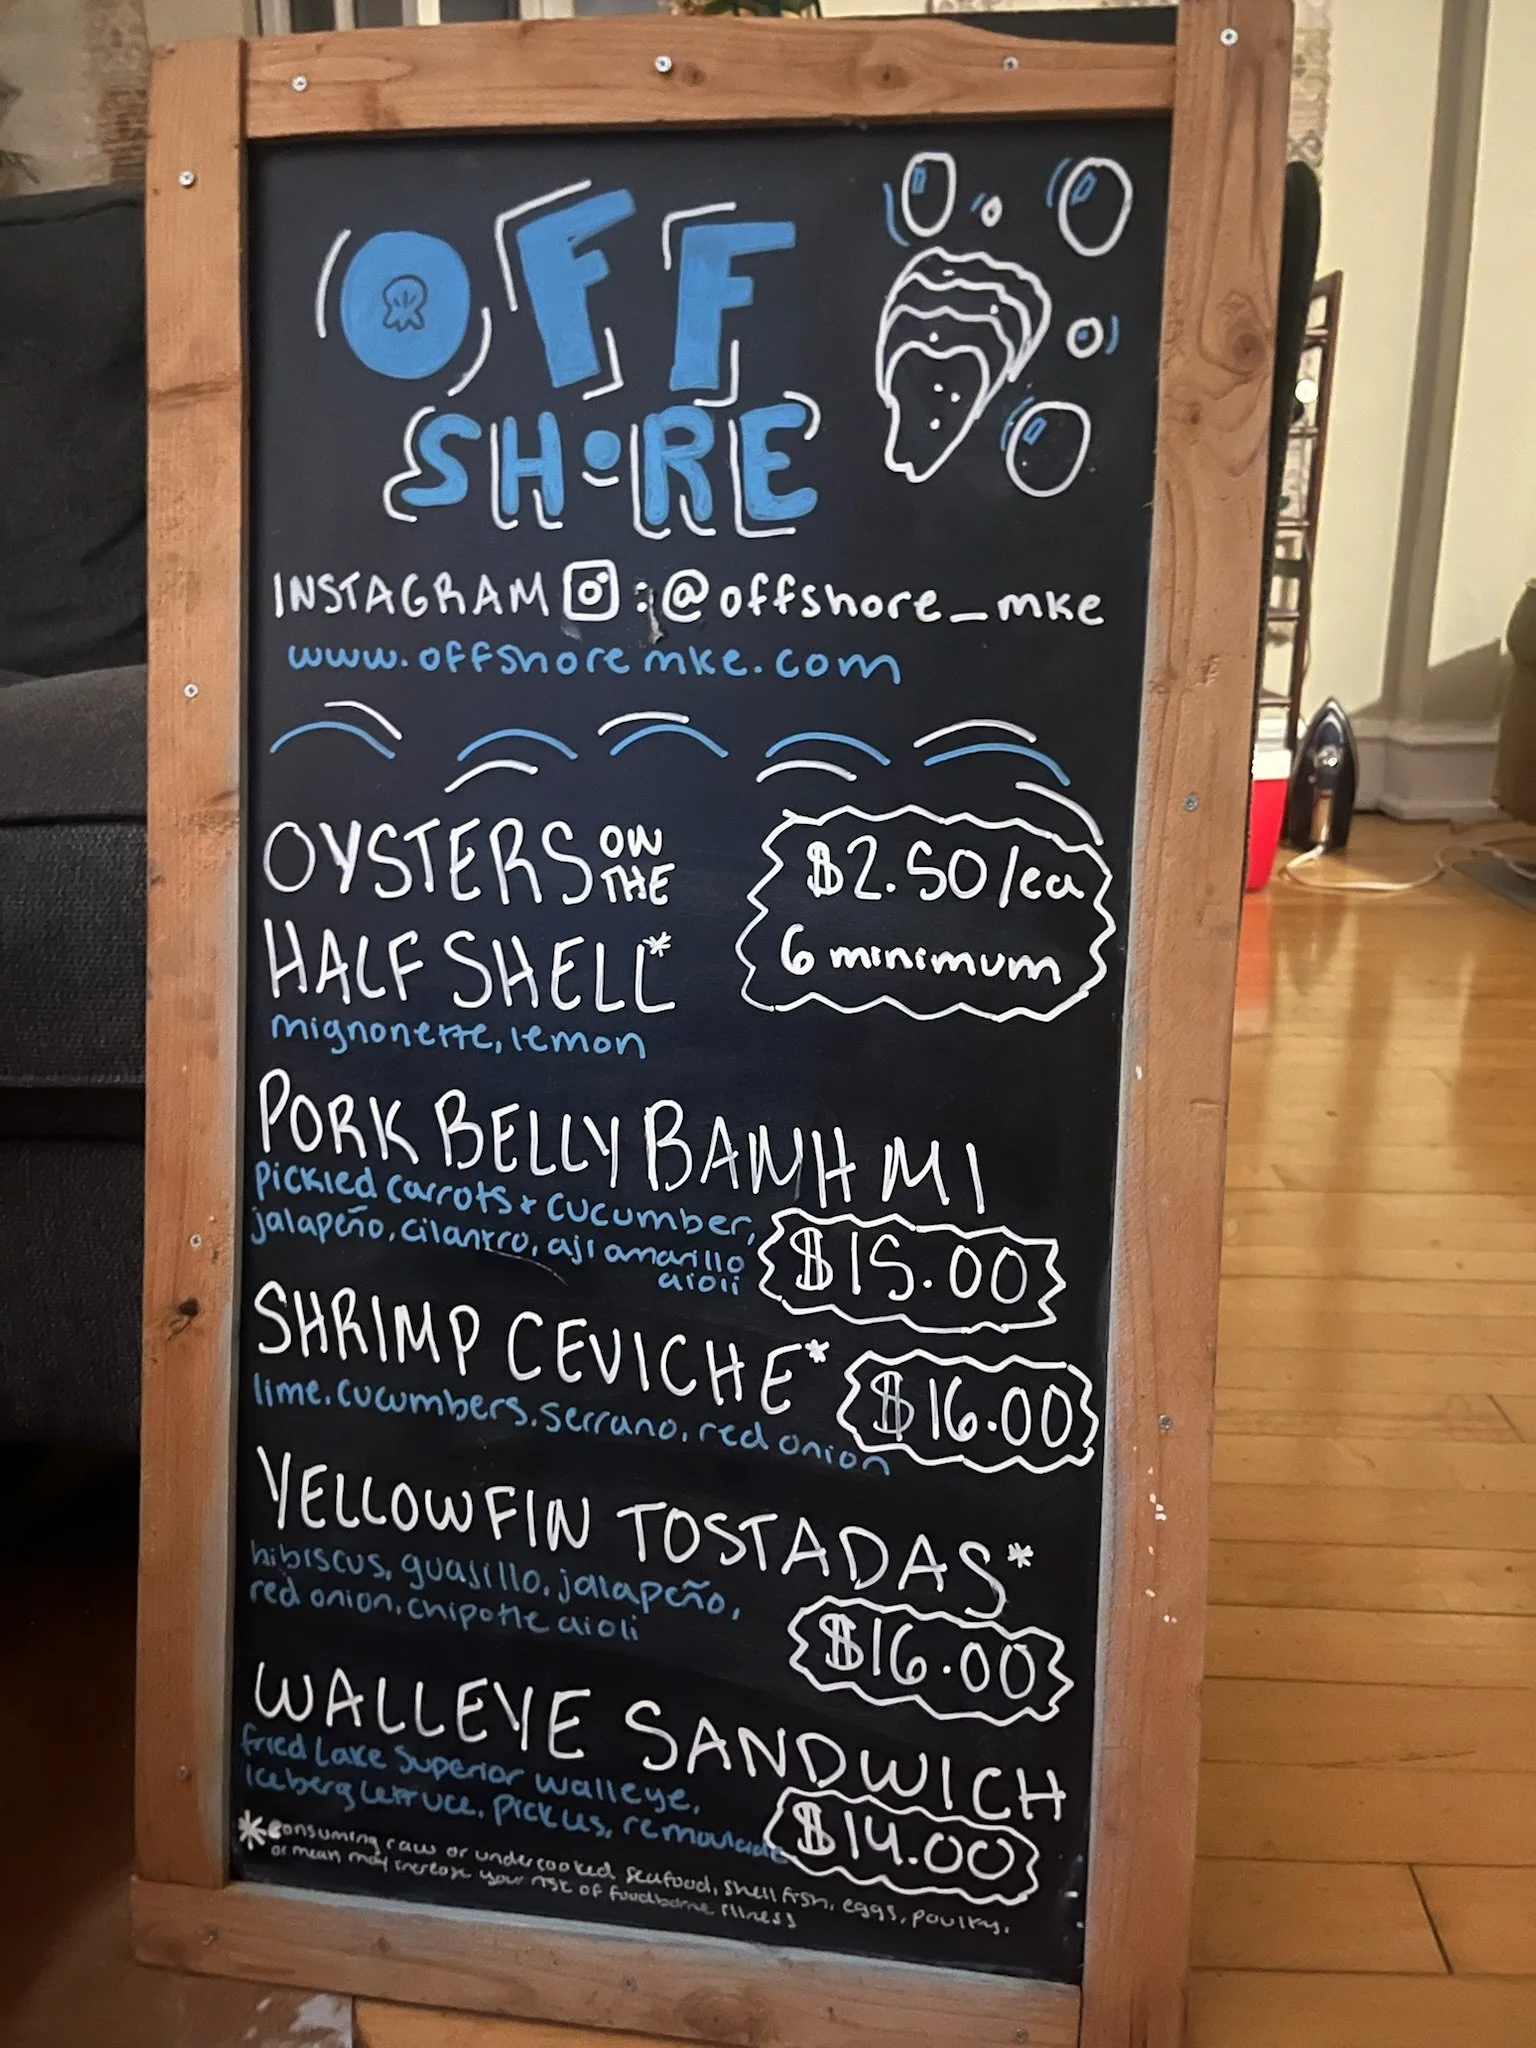 OFF
SHORE
INSTAGRAM : @offshore_mke
www.offshoremke.com
OYSTERS ON THE
HALF SHELL*
$2.50/ea
6 minimum
mignonette, lemon
PORK BELLY BANH MI
pickled carrots + cucumber,
jalapeño, cilantro, aji amarillo
aioli
$15.00
SHRIMP CEVICHE*
$16.00
lime, cucumbers, serrano, red onion
YELLOWFIN TOSTADAS*
hibiscus, guajillo, jalapeño,
red onion, chipotle aioli
$16.00
WALLEYE SANDWICH
fried Lake Superior walleye,
iceberg lettuce, pickles, remoulade
$14.00
*consuming raw or undercooked seafood, shellfish, eggs, poultry,
or mean may increase your risk of foodborne illness